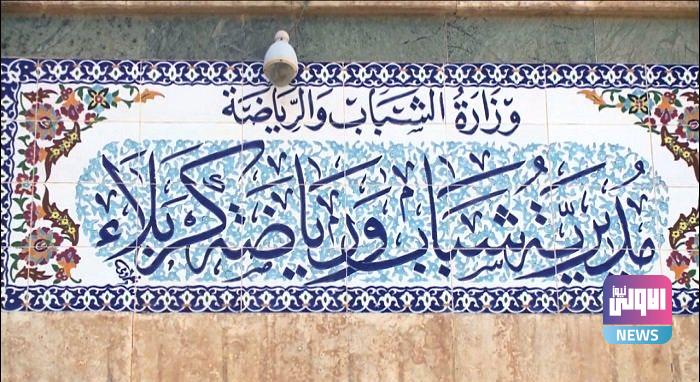 وَزَارَةُ الشَّبَابِ وَالرِّيَاضَة
مُدِيرِيَّةُ شَبَابِ وَرِيَاضَةِ كَرْبَلَاء
الاولى نيوز
NEWS